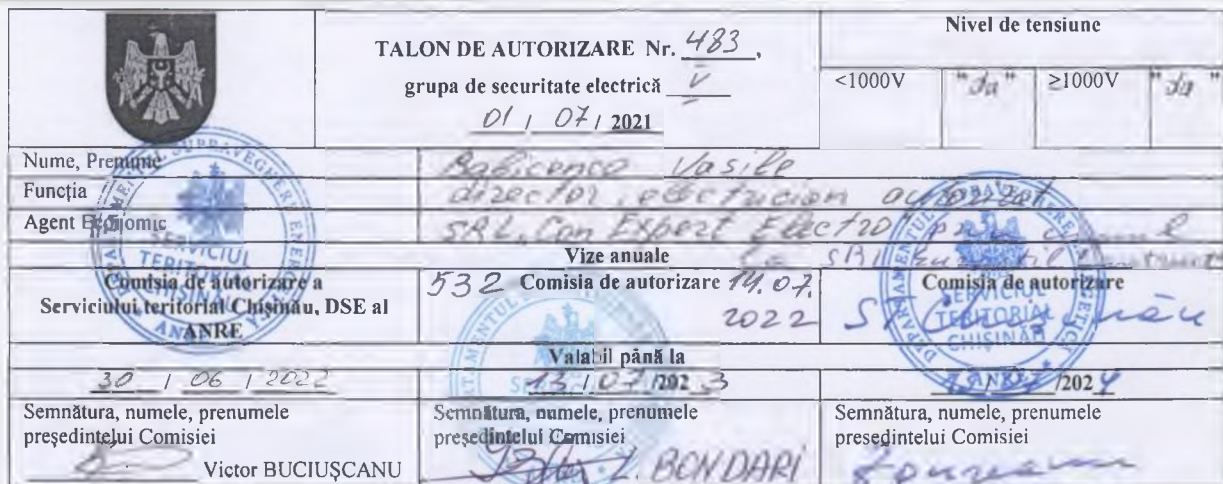 TALON DE AUTORIZARE Nr. 483,
grupa de securitate electrică V
01 / 07 / 2021
Nivel de tensiune
<1000V "da" ≥1000V "da"
Nume, Prenume Babicenco Vasile
Funcția director, electrician autorizat
Agent Economic SRL "Con Expert Electro" prin cumul
la SRL
Vize anuale
Comisia de autorizare a
Serviciului teritorial Chișinău, DSE al
ANRE
532 Comisia de autorizare 14.07.
2022
Comisia de autorizare
ST Chișinău
Valabil până la
30 / 06 / 2022
13 / 07 / 2023
/2024
Semnătura, numele, prenumele
președintelui Comisiei
Victor BUCIUȘCANU
Semnătura, numele, prenumele
președintelui Comisiei
I. BONDARI
Semnătura, numele, prenumele
presedintelui Comisiei
SERVICIUL
TERITORIAL
CHIȘINĂU